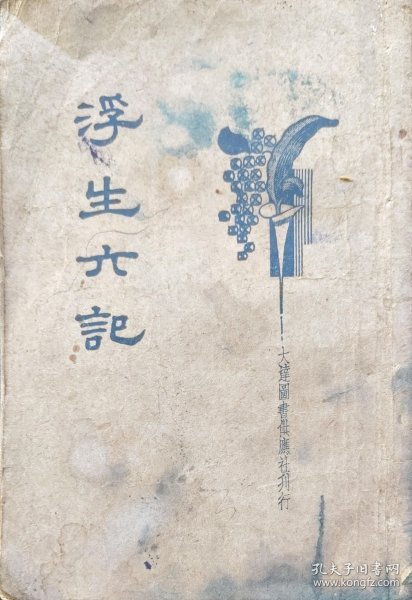 浮生六記
大達圖書供應社刊行
孔夫子旧书网
www.kongfz.com